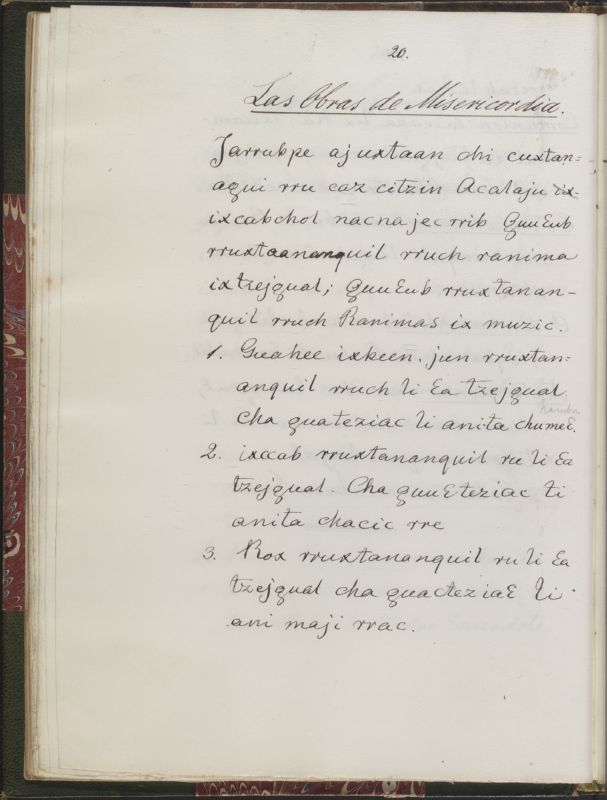 20.
Las Obras de Misericordia.
Jarrubpe ajuxtaan chi cuxtan=
aqui rru caz citzin Acalaju ix-
ixcabchol nacnajec rrib Quuɛub
rruxtaananquil rruch ranima
ixtzejgual; quuɛub rruxtanan-
quil rruch Ranimas ix muzic.
1. Guahee ixkeen. jun rruxtan=
anquil rruch li ɛa tzejgual
cha guateziac li anita chumeɛ.
2. ixccab rruxtananquil ru li ɛa
tzejgual. Cha guuɛteziac li
anita chacic rre
3. Rox rruxtananquil ru li ɛa
tzejgual cha guacteziaɛ li
ani maji rrac.